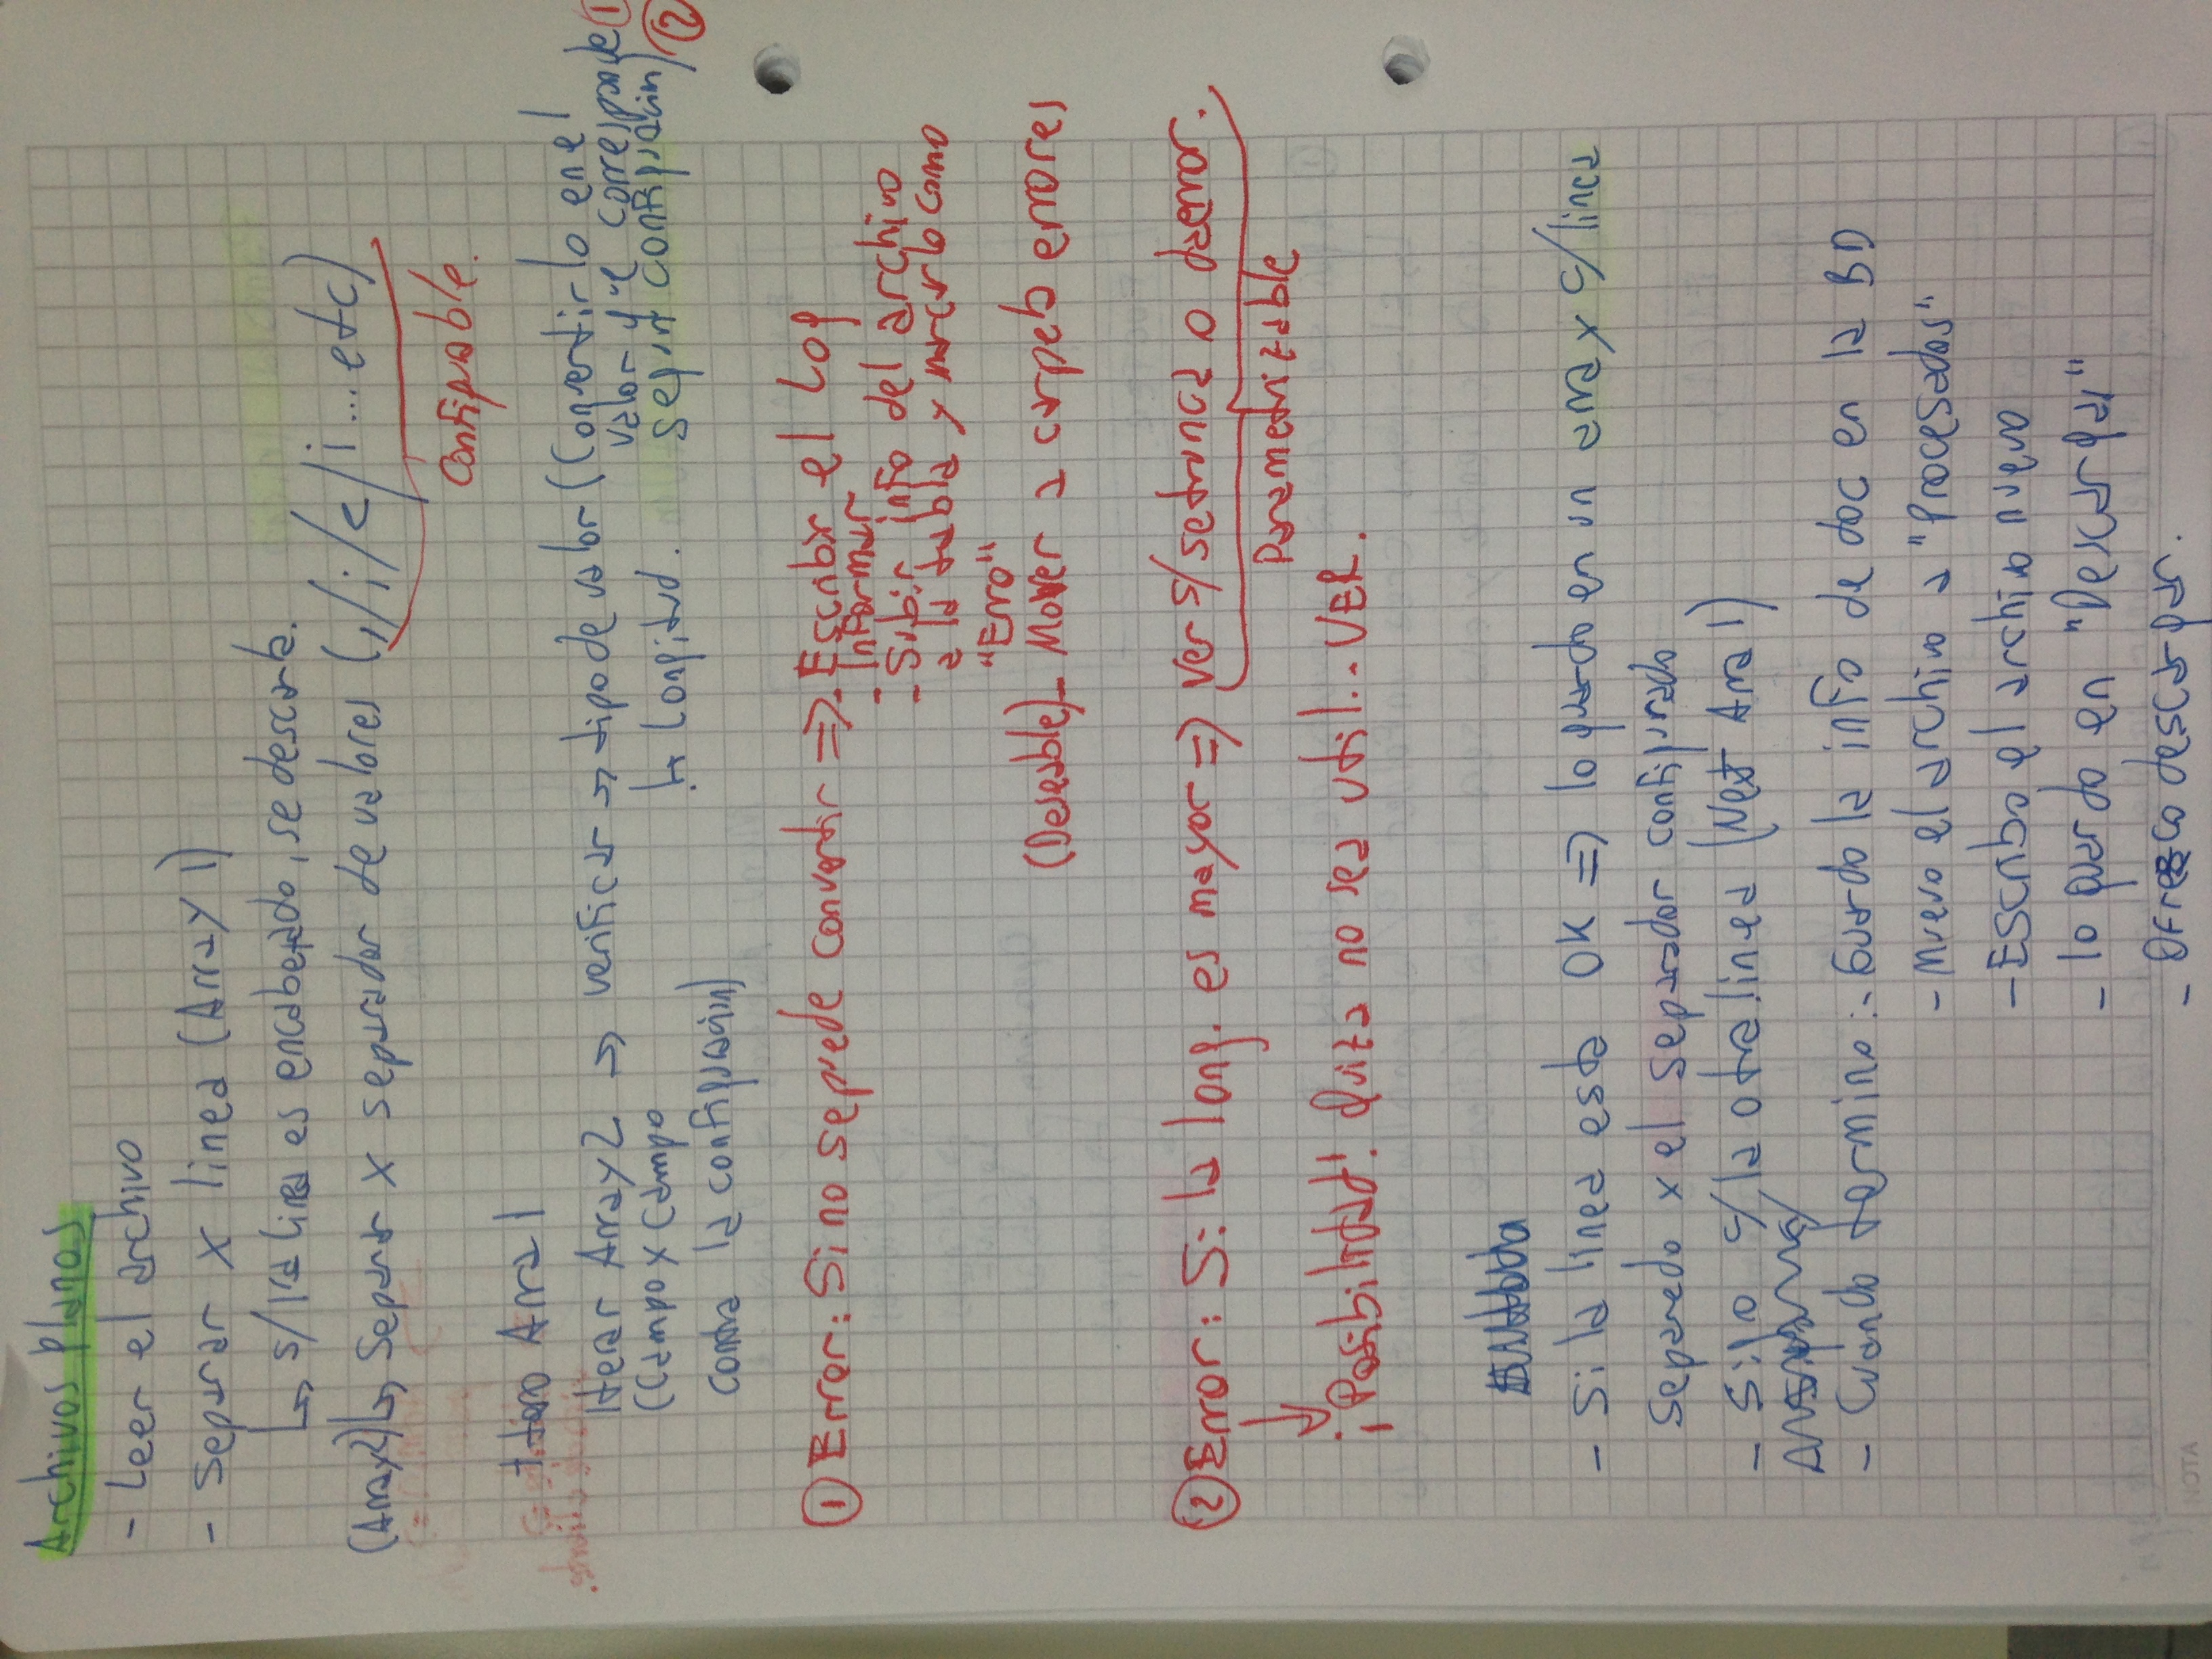 Archivos Planos
- Leer el archivo
- Separar x linea (Array 1)
↳ s/ 1ra linea es encabezado, se descarta.
(Array2) ↳ Separar x separador de valores (,/;/c/i... etc)
Configurable.
Itero Arra 1
Iterar Array 2 → verificar → tipo de valor (Convertirlo en el
valor que corresponde ①
(Campo x Campo ↳ Longitud. segun configuracion) ②
contra la configuracion)
① Error: Si no se puede convertir => - Escribir el Log
- Informar
- Subir info del archivo
a la tabla y marcarlo como
"Erro"
(Deseable) - Mover a carpeta errores
② Error: Si la long. es mayor => ver s/ se trunca o da error.
Parametrizable
¡Posibilidad! Quiza no sea util... VER.
- Si la linea esta OK => lo guardo en un array c/linea
separado x el separador configurado
- Sigo c/ la otra linea (Next Arra 1)
- Cuando termino: - Guardo la info de doc en la BD
- Muevo el archivo a "Procesados"
- Escribo el archivo nuevo
- lo guardo en "Descargas"
- Ofrezco descargar.